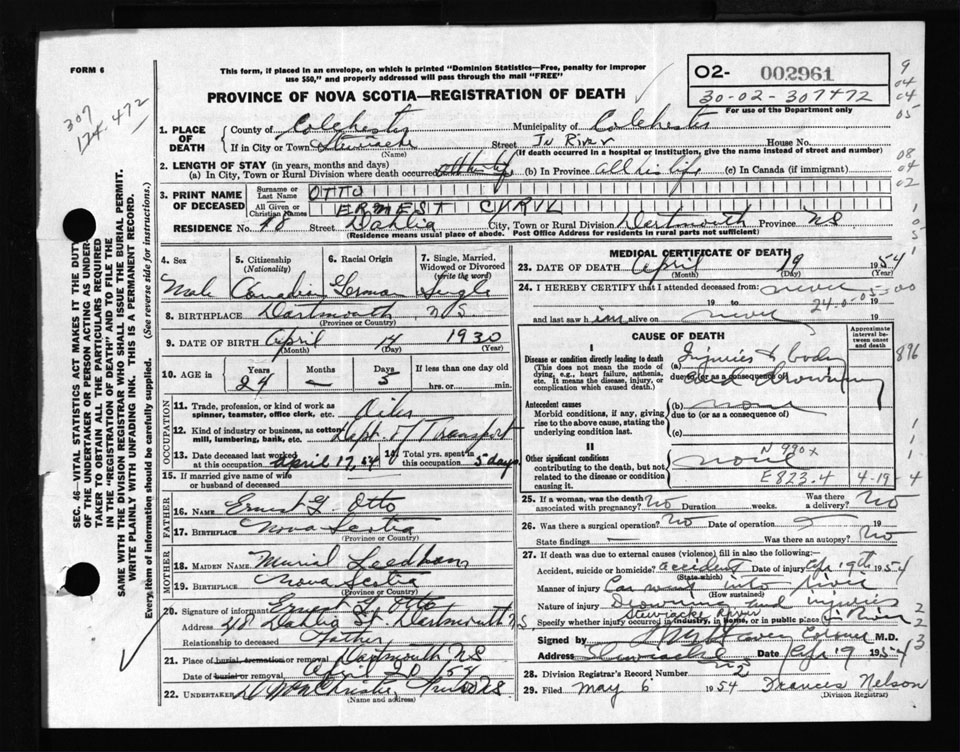 FORM 6
This form, if placed in an envelope, on which is printed "Dominion Statistics—Free, penalty for improper
use $50," and properly addressed will pass through the mail "FREE"
PROVINCE OF NOVA SCOTIA—REGISTRATION OF DEATH
02- 002961
30-02-307472
For use of the Department only
307
174.472
9
04
04
05
08
04
02
1. PLACE OF DEATH
County of Colchester Municipality of Colchester
If in City or Town Stewiacke Street In River House No.
(Name) (If death occurred in a hospital or institution, give the name instead of street and number)
2. LENGTH OF STAY (in years, months and days)
(a) In City, Town or Rural Division where death occurred (b) In Province all his life (c) In Canada (if immigrant)
3. PRINT NAME OF DECEASED
Surname or Last Name OTTO
All Given or Christian Names ERNEST CYRIL
RESIDENCE No. 48 Street Dahlia City, Town or Rural Division Dartmouth Province NS
(Residence means usual place of abode. Post Office Address for residents in rural parts not sufficient)
SEC. 46—VITAL STATISTICS ACT MAKES IT THE DUTY
OF THE UNDERTAKER OR PERSON ACTING AS UNDER-
TAKER TO OBTAIN ALL THE PARTICULARS REQUIRED
IN THE "REGISTRATION OF DEATH" AND TO FILE THE
SAME WITH THE DIVISION REGISTRAR WHO SHALL ISSUE THE BURIAL PERMIT.
WRITE PLAINLY WITH UNFADING INK. THIS IS A PERMANENT RECORD.
Every item of information should be carefully supplied. (See reverse side for instructions.)
4. Sex Male
5. Citizenship (Nationality) Canadian
6. Racial Origin German
7. Single, Married, Widowed or Divorced (write the word) Single
8. BIRTHPLACE Dartmouth NS
(Province or Country)
9. DATE OF BIRTH April 14 1930
(Month) (Day) (Year)
10. AGE in Years 24 Months — Days 5 If less than one day hrs. or min.
OCCUPATION
11. Trade, profession, or kind of work as spinner, teamster, office clerk, etc. Oiler
12. Kind of industry or business, as cotton mill, lumbering, bank, etc. Dept. of Transport
13. Date deceased last worked at this occupation April 17, 54 14. Total yrs. spent in this occupation 5 days
15. If married give name of wife or husband of deceased
FATHER
16. Name Ernest G. Otto
17. Birthplace Nova Scotia
(Province or Country)
MOTHER
18. MAIDEN NAME Murial Leedham
19. BIRTHPLACE Nova Scotia
(Province or Country)
20. Signature of informant Ernest G. Otto
Address 48 Dahlia St. Dartmouth N S
Relationship to deceased Father
21. Place of burial, cremation or removal Dartmouth, NS
Date of burial or removal April 20 54
22. UNDERTAKER Truro NS
(Name and address)
MEDICAL CERTIFICATE OF DEATH
23. DATE OF DEATH April 19 1954
(Month) (Day) (Year)
24. I HEREBY CERTIFY that I attended deceased from: never
19 to 19
and last saw him alive on never 19
CAUSE OF DEATH
Approximate interval between onset and death
I
Disease or condition directly leading to death
(This does not mean the mode of dying, e.g., heart failure, asthenia, etc. It means the disease, injury, or complication which caused death.)
(a) Injuries to body
due to (or as a consequence of) drowning
Antecedent causes
Morbid conditions, if any, giving rise to the above cause, stating the underlying condition last.
(b) none
due to (or as a consequence of)
(c)
II
Other significant conditions contributing to the death, but not related to the disease or condition causing it.
none
N 990x
E 823.4 4-19
896
1
1
1
4
25. If a woman, was the death associated with pregnancy? No Duration weeks. Was there a delivery? No
26. Was there a surgical operation? No Date of operation 19
State findings — Was there an autopsy? No
27. If death was due to external causes (violence) fill in also the following:
Accident, suicide or homicide? accident Date of injury Apr 19th 1954
(State which)
Manner of injury Car went into river
(How sustained)
Nature of injury Drowning and injuries
Stewiacke River
Specify whether injury occurred in industry, in home, or in public place in River
Signed by Coroner M.D.
Address Stewiacke NS Date Apr 19 1954
28. Division Registrar's Record Number 2
29. Filed May 6 1954 Frances Nelson
(Division Registrar)
2
2
3